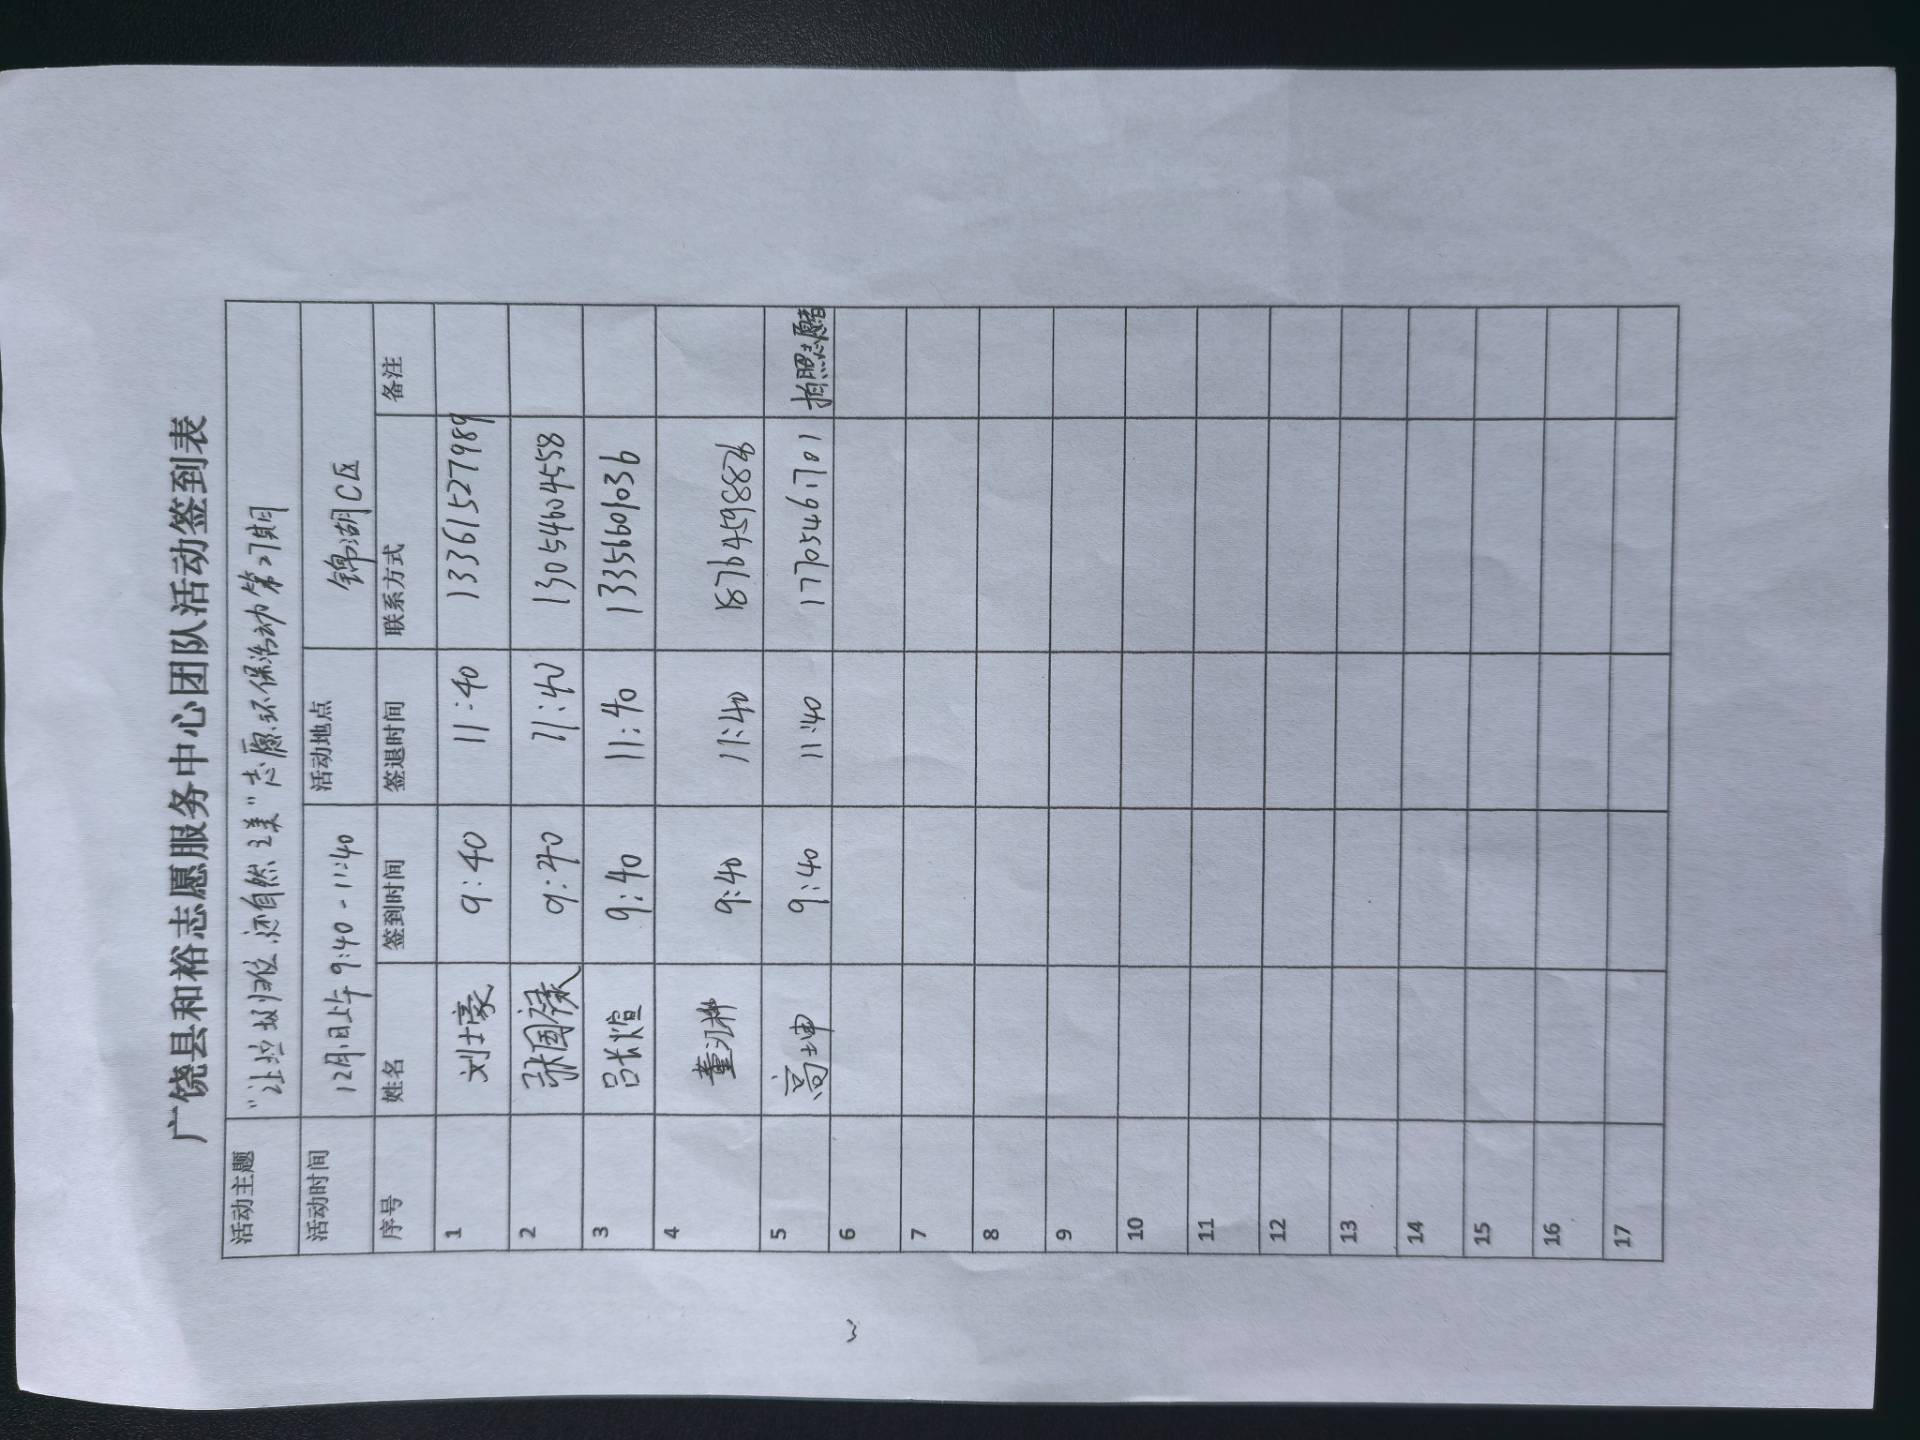 广饶县和裕志愿服务中心团队活动签到表
活动主题 "让垃圾归位,还自然之美"志愿环保活动第27期
活动时间 12月1日上午9:40-11:40 活动地点 锦湖C区
序号 姓名 签到时间 签退时间 联系方式 备注
1 刘士豪 9:40 11:40 13361527989
2 张国禄 9:40 11:40 13054604558
3 吕长煊 9:40 11:40 13356601036
4 董 9:40 11:40 18764598826
5 高坤 9:40 11:40 17705461701 拍照志愿者
6
7
8
9
10
11
12
13
14
15
16
17